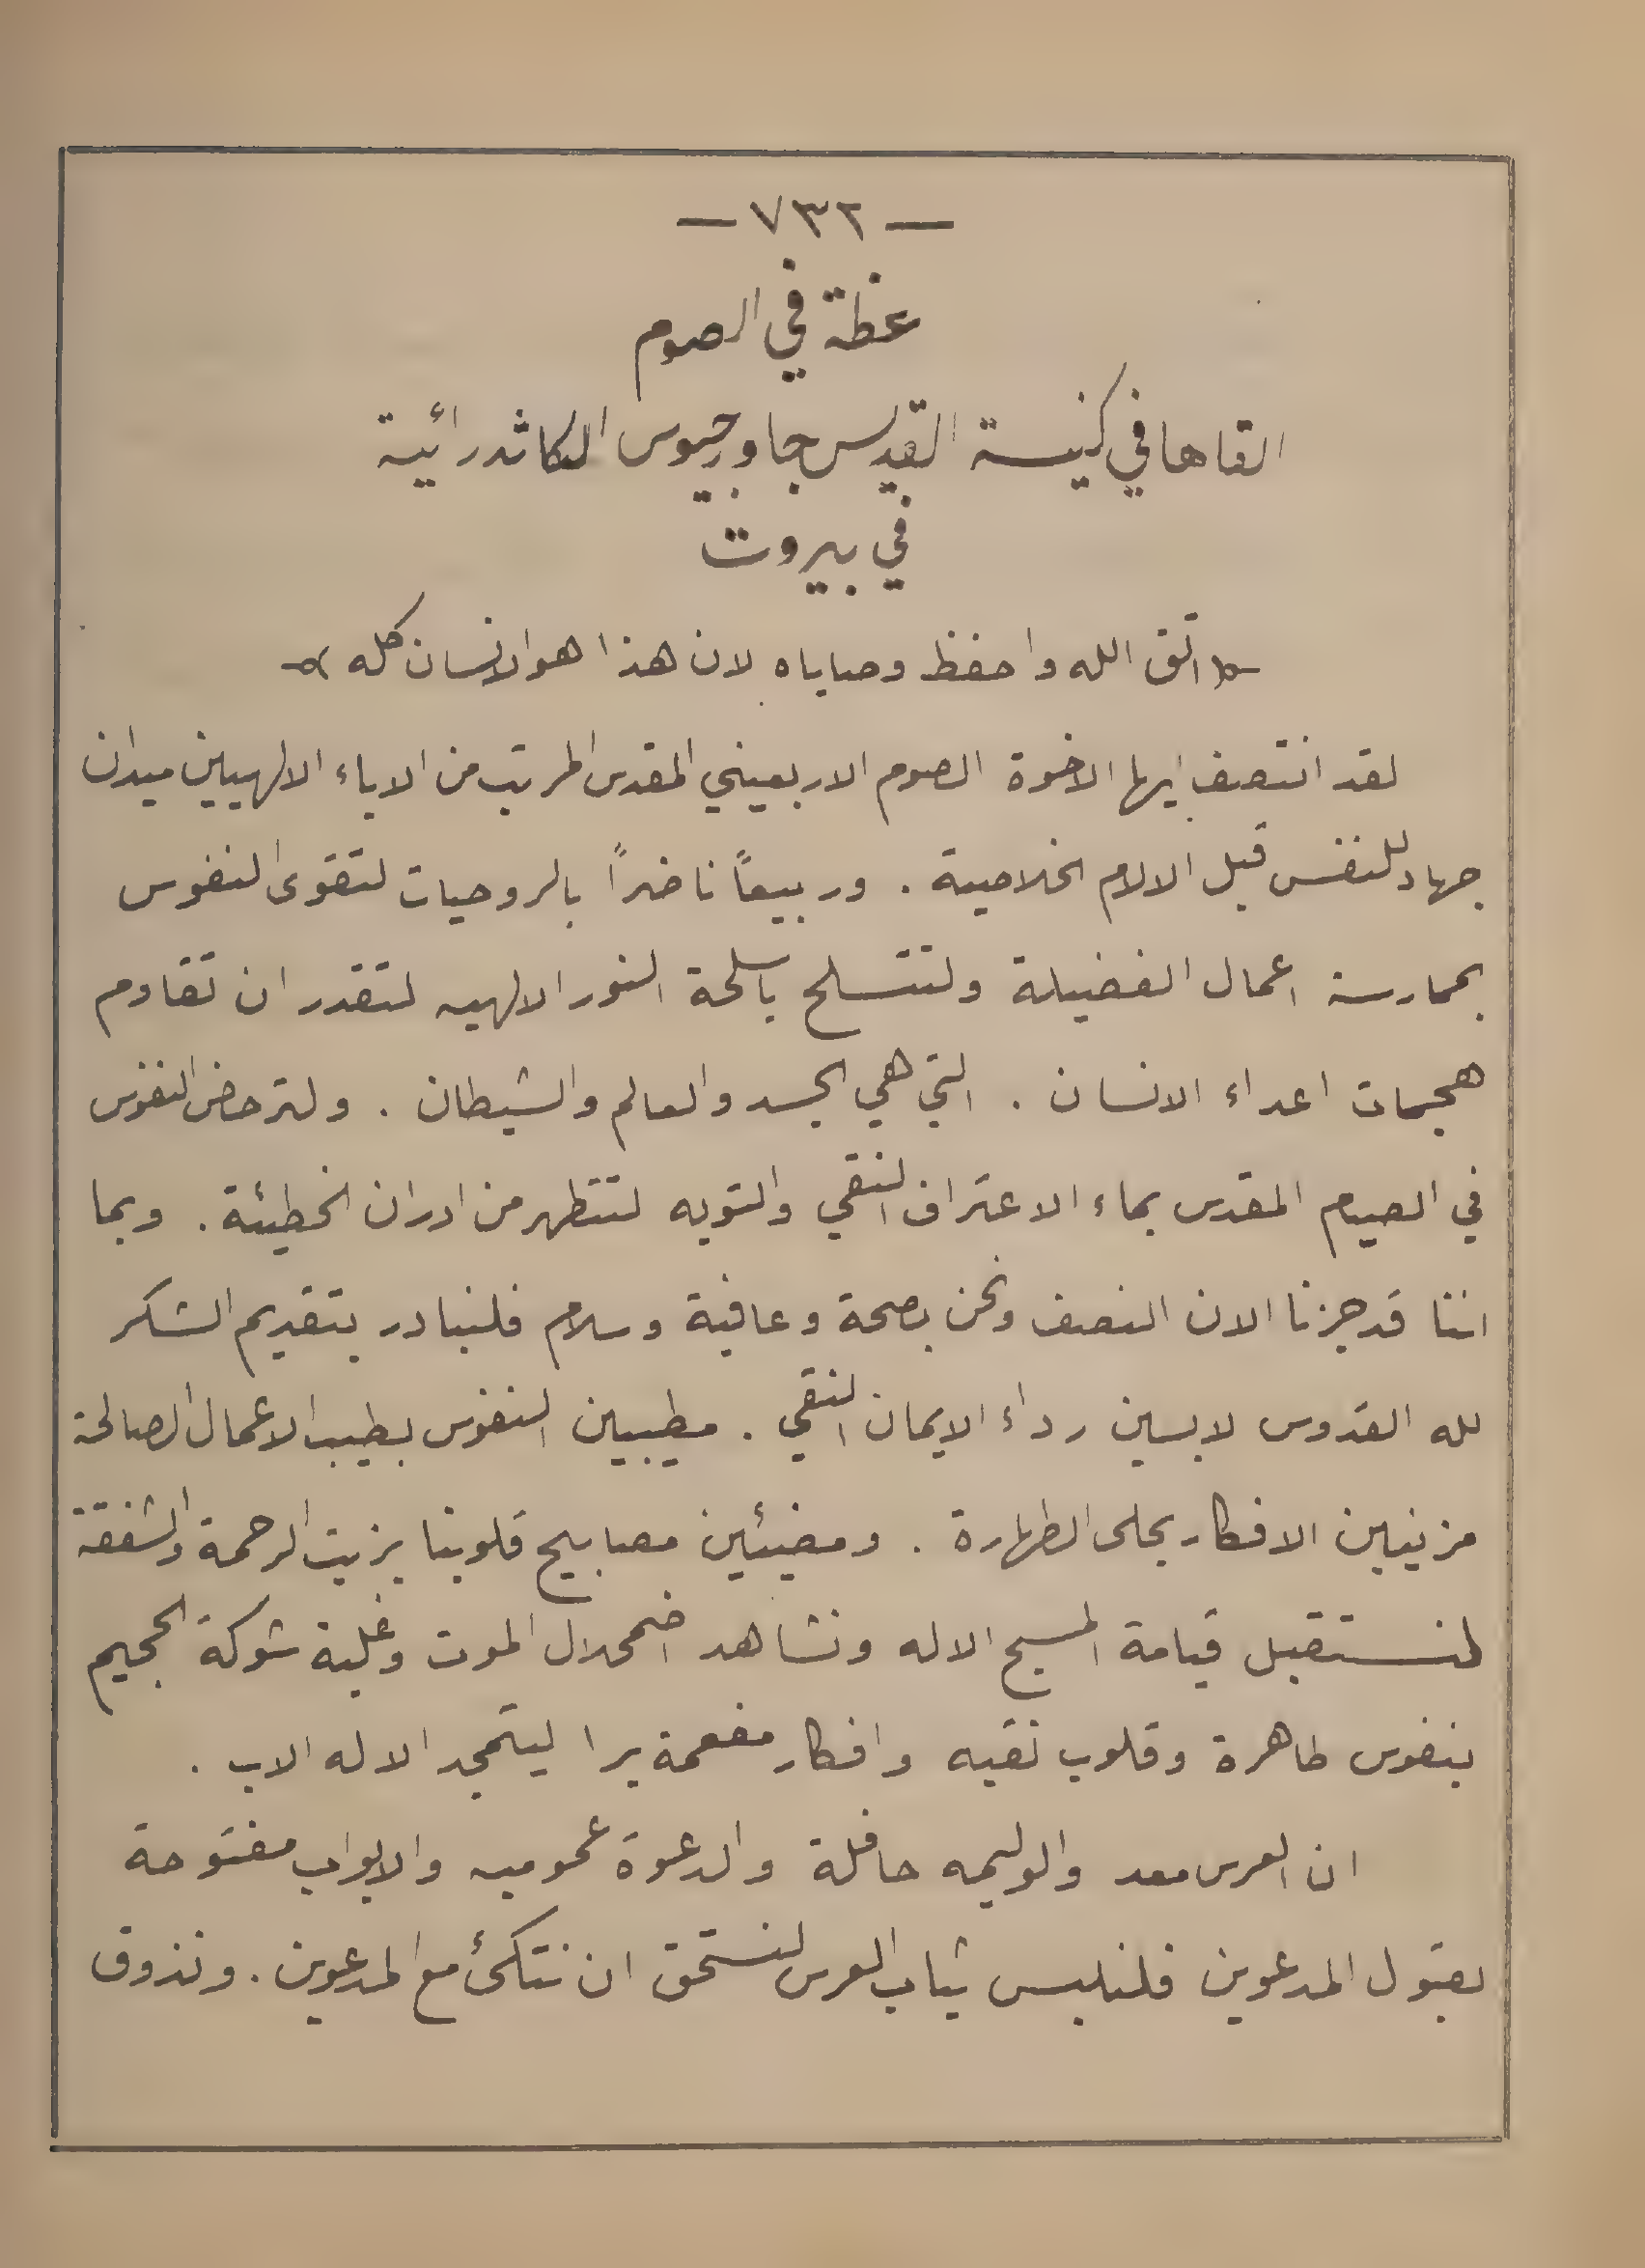 — ٧٣٢ —
عظة في الصوم
القاها في كنيسة القديس جاورجيوس الكاثدرائية
في بيروت
اتق الله واحفظ وصاياه لان هذا هو الانسان كله
لقد انتصف ايها الاخوة الصوم الاربعيني المقدس المرتب من الاباء الالهيين ميدان
جهاد للنفس قبل الالام الخلاصية . وربيعاً ناضراً بالروحيات لتقوى النفوس
بممارسة اعمال الفضيلة ولتتسلح باسلحة النور الالهيه لتقدر ان تقاوم
هجمات اعداء الانسان . التي هي الجسد والعالم والشيطان . ولترحض النفوس
في الصيام المقدس بماء الاعتراف النقي والتوبه لتتطهر من ادران الخطيئة . وبما
اننا قد جزنا الان النصف ونحن بصحة وعافية وسلام فلنبادر بتقديم الشكر
لله القدوس لابسين رداء الايمان النقي . مطيبين النفوس بطيب الاعمال الصالحة
مزينين الافكار بحلى الطهارة . ومضيئين مصابيح قلوبنا بزيت الرحمة والشفقة
لنستقبل قيامة المسيح الاله ونشاهد اضمحلال الموت وغلبة شوكة الجحيم
بنفوس طاهرة وقلوب نقيه وافكار مفعمة برا ليتمجد الاله الاب .
ان العرس معد والوليمه حافلة والدعوة عموميه والابواب مفتوحة
لقبول المدعوين فلنلبس ثياب العرس لنستحق ان نتكئ مع المدعوين . ونذوق